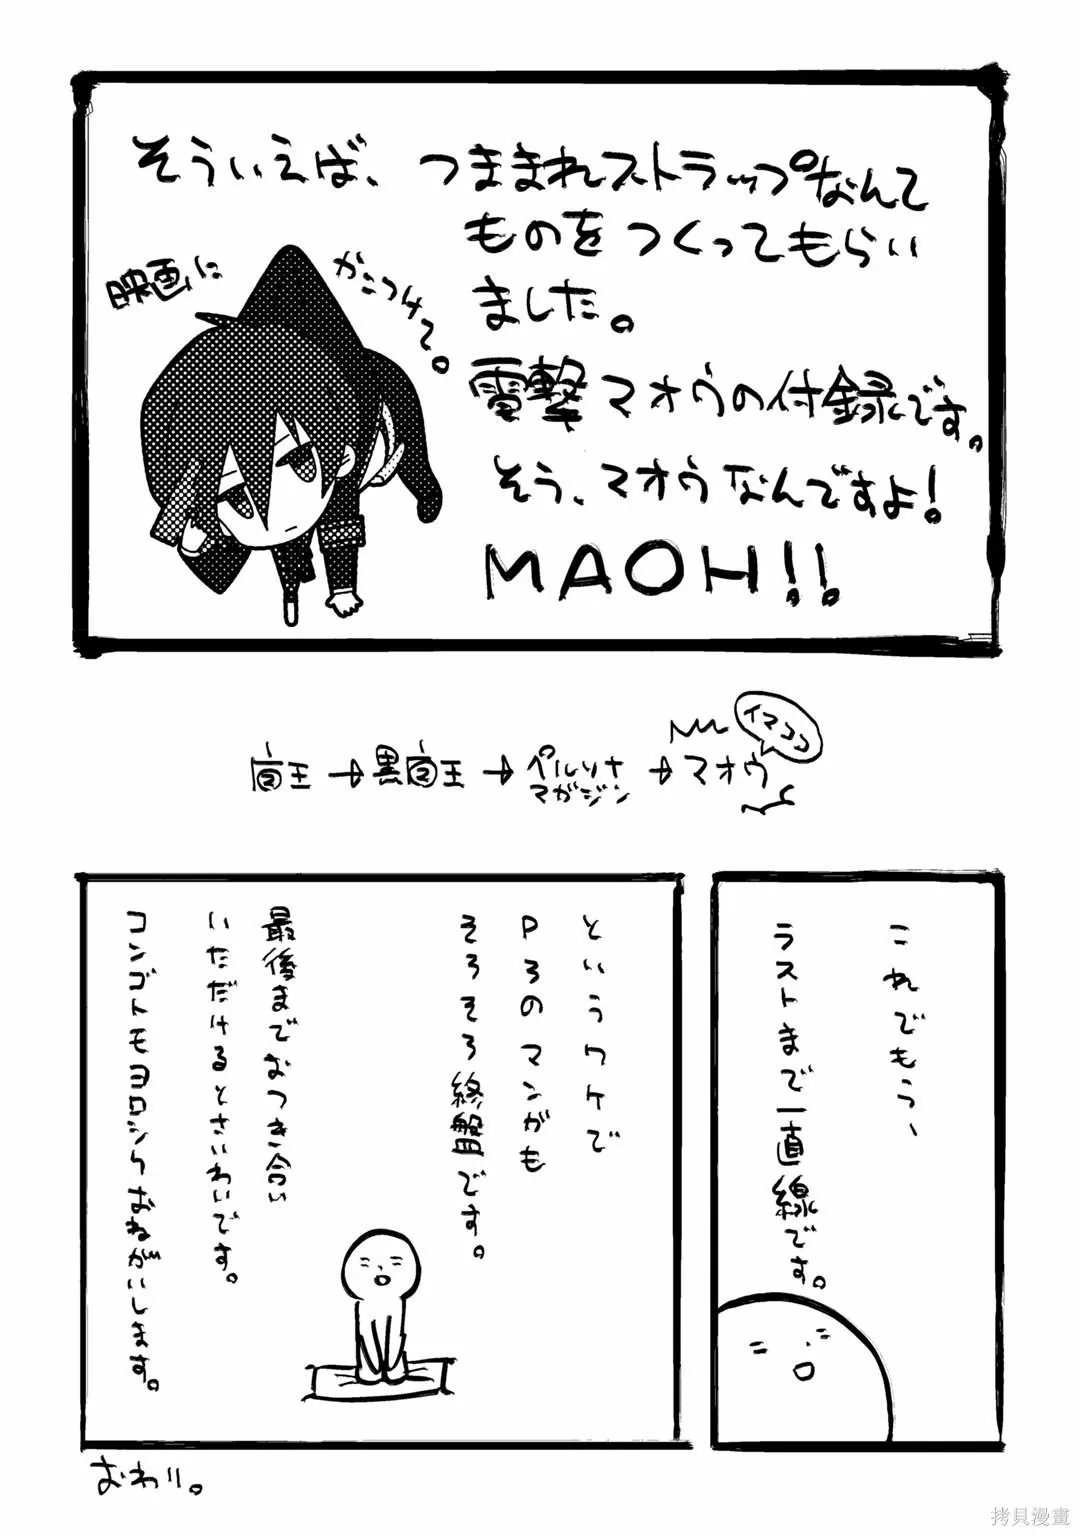 そういえば、つままれストラップなんて
ものをつくってもらい
ました。
映画に
かこつけて。
電撃マオウの付録です。
そう、マオウなんですよ!
MAOH!!
イマココ
盾王→黒盾王→ペルソナマガジン→マオウ
これでもう、
ラストまで一直線です。
というワケで
P3のマンガも
そろそろ終盤です。
最後までおつき合い
いただけるとさいわいです。
コンゴトモヨロシクおねがいします。
おわり。
拷貝漫畫